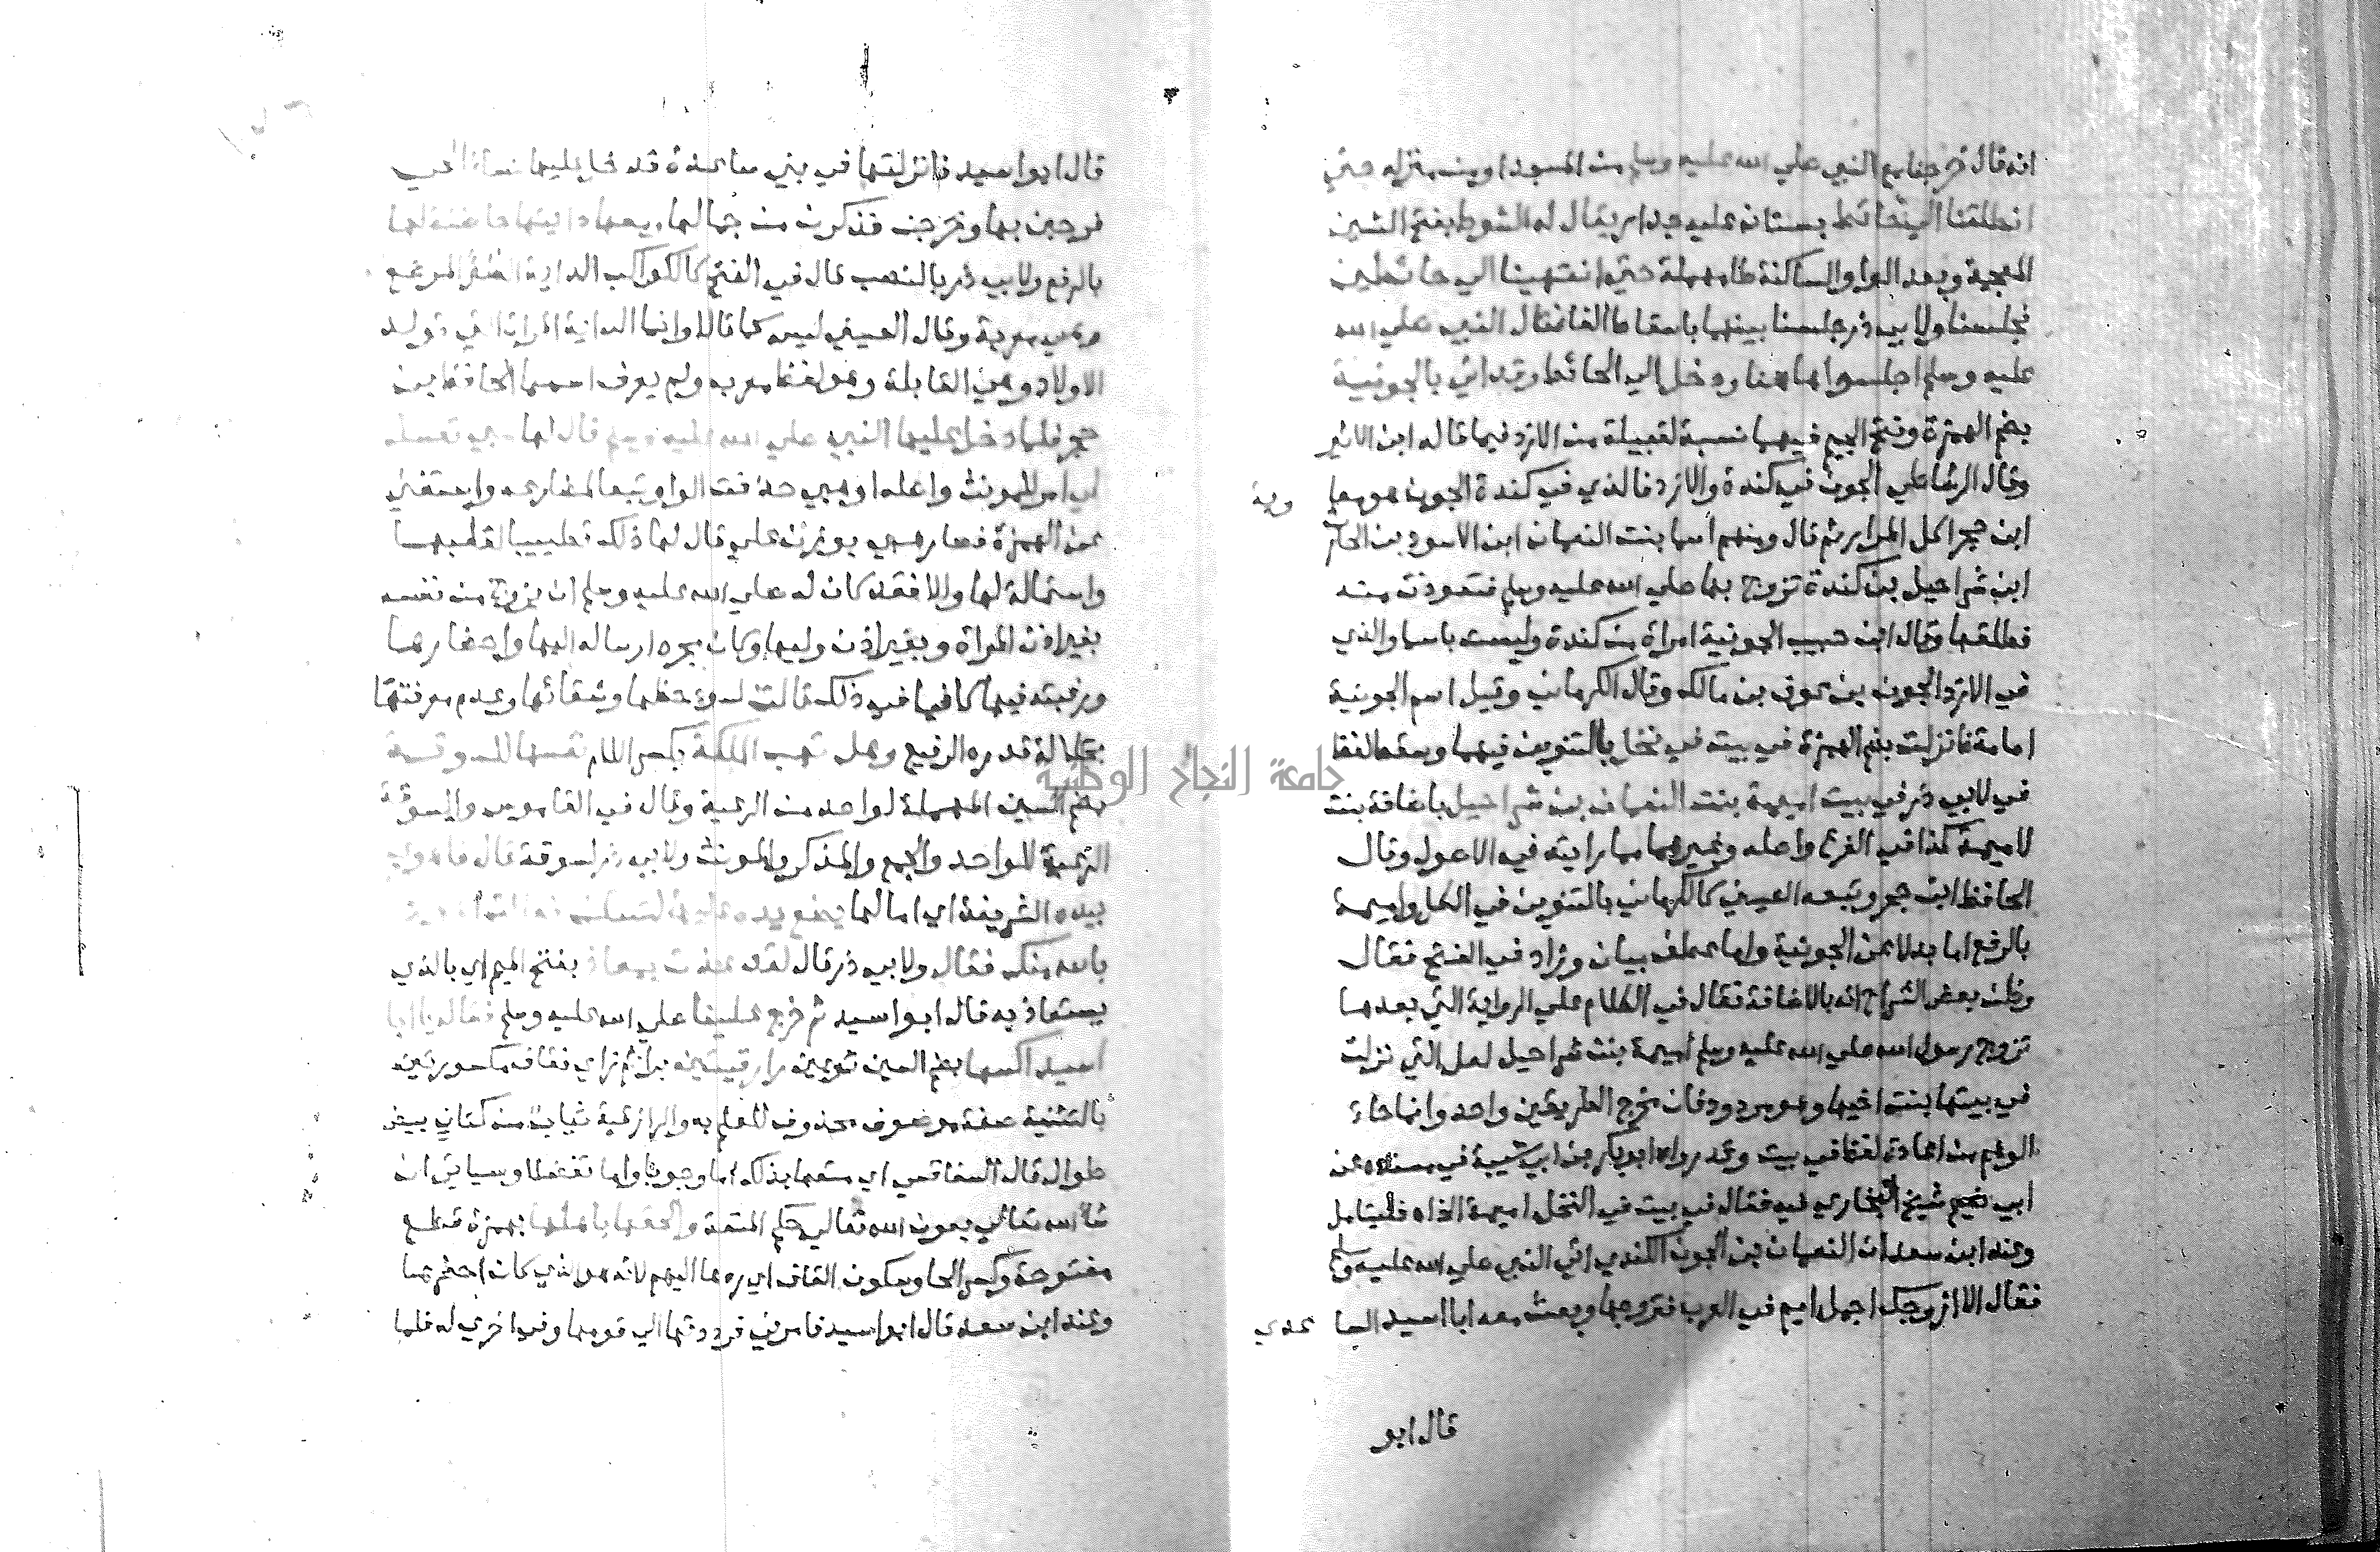 انه قال خرجنا مع النبي صلي الله عليه وسلم من المسجد او من منزله حتي
انطلقنا الي حائط بستان عليه جدار يقال له الشوط بفتح الشين
المعجمة وبعد الواو الساكنة طا مهملة حتي انتهينا الي حائطين
فجلسنا ولابي ذر جلسنا بينهما باسقاط الفا فقال النبي صلي الله
عليه وسلم اجلسوا هاهنا ودخل الي الحائط وقد اتي بالجونية
بضم الهمزة وفتح الجيم فيهما نسبة لقبيلة من الازد فيما قاله ابن الاثير
وقال الرشاطي الجون في كندة والازد فالذي في كندة الجون هو معا وية
ابن حجر اكل المرار ثم قال ومنهم اسما بنت النعمان ابن الاسود بن الحارث
ابن شراحيل بن كندة تزوج بها صلي الله عليه وسلم فتعوذت منه
فطلقها وقال ابن حبيب الجونية امراة من كندة وليست باسما والذي
في الازد الجون بن عوف بن مالك وقال الكرماني وقيل اسم الجونية
امامة فانزلت بضم الهمزة في بيت في نخل بالتنوين فيهما وسقط لفظ
في لابي ذر في بيت اميمة بنت النعمان بن شراحيل باضافة بنت
لاميمة كذا في الفرع واصله وغيرهما مما رايته في الاصول وقال
الحافظ ابن حجر وتبعه العيني كالكرماني بالتنوين في الكل واميمة
بالرفع اما بدلا عن الجونية واما عطف بيان وزاد في الفتح فقال
وظن بعض الشراح انه بالاضافة فقال في الكلام علي الرواية التي بعدها
تزوج رسول الله صلي الله عليه وسلم اميمة بنت شراحيل لعل التي نزلت
في بيتها بنت اخيها وهو مردود فان مخرج الطريقين واحد وانما جاء
الوهم من اعادة لفظ في بيت وقد رواه ابو بكر بن ابي شيبة في مسنده عن
ابي نعيم شيخ البخاري فيه فقال في بيت في النخل اميمة الخ اه فليتامل
وعند ابن سعد ان النعمان بن الجون الكندي اتي النبي صلي الله عليه وسلم
فقال الا ازوجك اجمل ايم في العرب فتزوجها وبعث معه ابا اسيد السا عدي
قال ابو
قال ابو اسيد فانزلتها في بني ساعدة فدخل عليها نساء الحي
فرحبن بها وخرجن فذكرن من جمالها ومعها دايتها حاضنة لها
بالرفع ولابي ذر بالنصب قال في الفتح كالكواكب الداية الظئر المرضع
وهي معربة وقال العيني ليس كما قالا وانما الداية المراة التي تولد
الاولاد وهي القابلة وهو لفظ معرب ولم يعرف اسمها الحافظ بن
حجر فلما دخل عليها النبي صلي الله عليه وسلم قال لها هبي نفسك
لي امر للمونث واصله اوهبي حذفت الواو تبعا لمضارعه واستغني
عن الهمزة فصار هبي بوزن علي قال لها ذلك تطييبا لقلبها
واستمالة لها والا فقد كان له صلي الله عليه وسلم ان يزوج من نفسه
بغير اذن المراة وبغير اذن وليها وكان مجرد ارساله اليها واحضارها
ورغبته فيها كافيا في ذلك قالت لسوء حظها وشقائها وعدم معرفتها
بجلالة قدره الرفيع وهل تهب الملكة بكسر اللام نفسها للسوقة
بضم السين المهملة لواحد من الرعية وقال في القاموس والسوقة
الرعية للواحد والجمع والمذكر والمونث ولابي ذر لسوقة قال فاهوي
بيده الشريفة اي امالها يضع يده عليها لتسكن فقالت اعوذ
بالله منك فقال ولابي ذر قال لقد عذت بمعاذ بفتح الميم اي بالذي
يستعاذ به قال ابو اسيد ثم خرج علينا صلي الله عليه وسلم فقال يا ابا
اسيد اكسها بضم السين ثوبين رازقيتين برا ثم زاي فقاف مكسورتين
بالتثنية صفة موصوف محذوف للعلم به والرازقية ثياب من كتان بيض
طوال قال السفاقسي اي متعها بذلك اما وجوبا واما تفضلا وسياتي ان
شا الله تعالي بعون الله تعالي حكم المتعة والحقها باهلها بهمزة قطع
مفتوحة وكسر الحا وسكون القاف اي ردها اليهم لانه هو الذي كان احضرها
وعند ابن سعد قال ابو اسيد فامرني فرددتها الي قومها وفي اخري له فلما